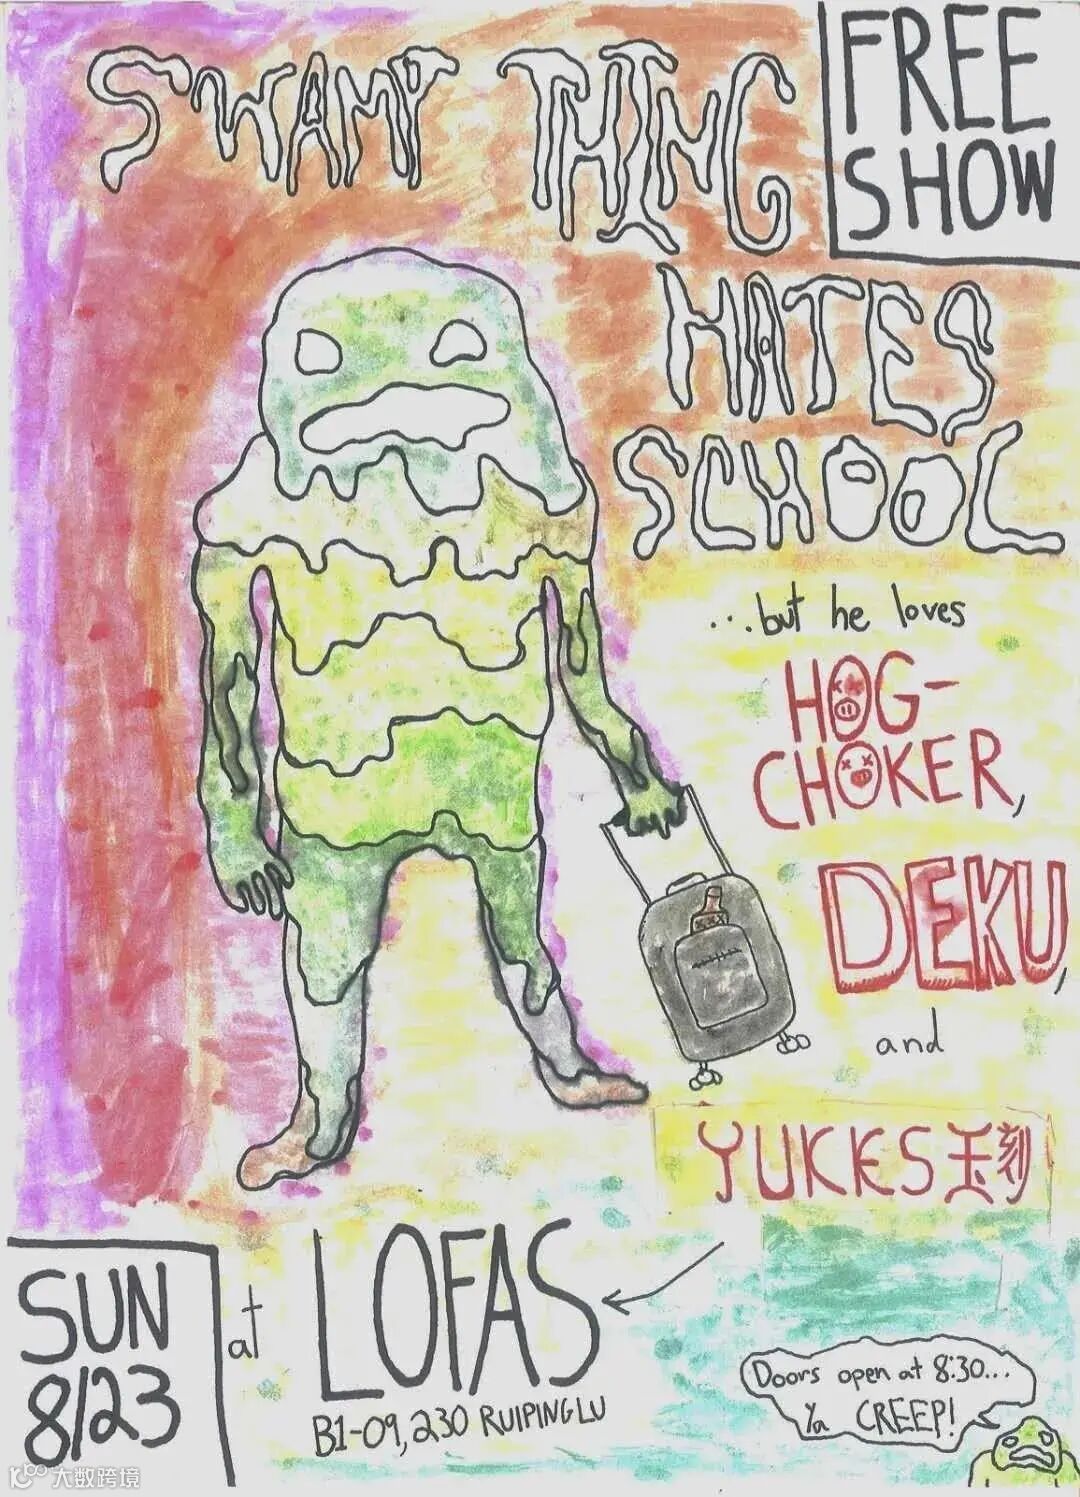 FREE
SHOW
SWAMP THING
HATES
SCHOOL
...but he loves
HOG-
CHOKER,
DEKU,
and
YUKKES玉刻
SUN
8/23
at LOFAS
B1-09, 230 RUIPINGLU
Doors open at 8:30...
Ya CREEP!
XXX
大数跨境